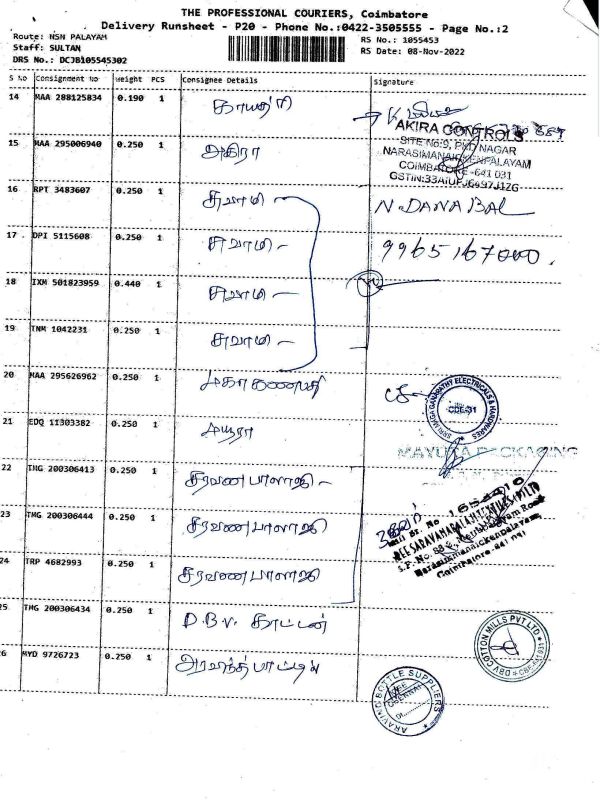 THE PROFESSIONAL COURIERS, Coimbatore
Delivery Runsheet - P20 - Phone No.:0422-3505555 - Page No.:2
Route: NSN PALAYAM
RS No.: 1055453
Staff: SULTAN
RS Date: 08-Nov-2022
DRS No.: DCJB105545302
S No Consignment No Weight PCS Consignee Details Signature
14 MAA 288125834 0.190 1 காயத்ரி
AKIRA CONTROLS
15 MAA 295006940 0.250 1 அகிரா
NARASIMANAICKENPALAYAM
COIMBATORE -641 031
16 RPT 3483607 0.250 1 சுவாமி
N. DANA BAL
17 DPI 5115608 0.250 1 சுவாமி -
18 IXM 501823959 0.440 1 சுவாமி -
19 TNM 1042231 0.250 1 சுவாமி -
20 MAA 295626962 0.250 1 மகா கணபதி
SHRI MAGA GANAPATHY ELECTRICALS & HARDWARES
CBE-31
21 EDQ 11303382 0.250 1 மயூரா
MAYURA PACKAGING
22 TMG 200306413 0.250 1 சரவண பாலாஜி -
23 TMG 200306444 0.250 1 சரவண பாலாஜி
24 TRP 4682993 0.250 1 சரவண பாலாஜி
Narasimmanaickenpalayam,
Coimbatore-641 031
25 TMG 200306434 0.250 1 D.B.V. காட்டன்
DBV COTTON MILLS PVT LTD
26 MYD 9726723 0.250 1 அரவிந்த் பாட்டில்
ARAVIND BOTTLE SUPPLIERS